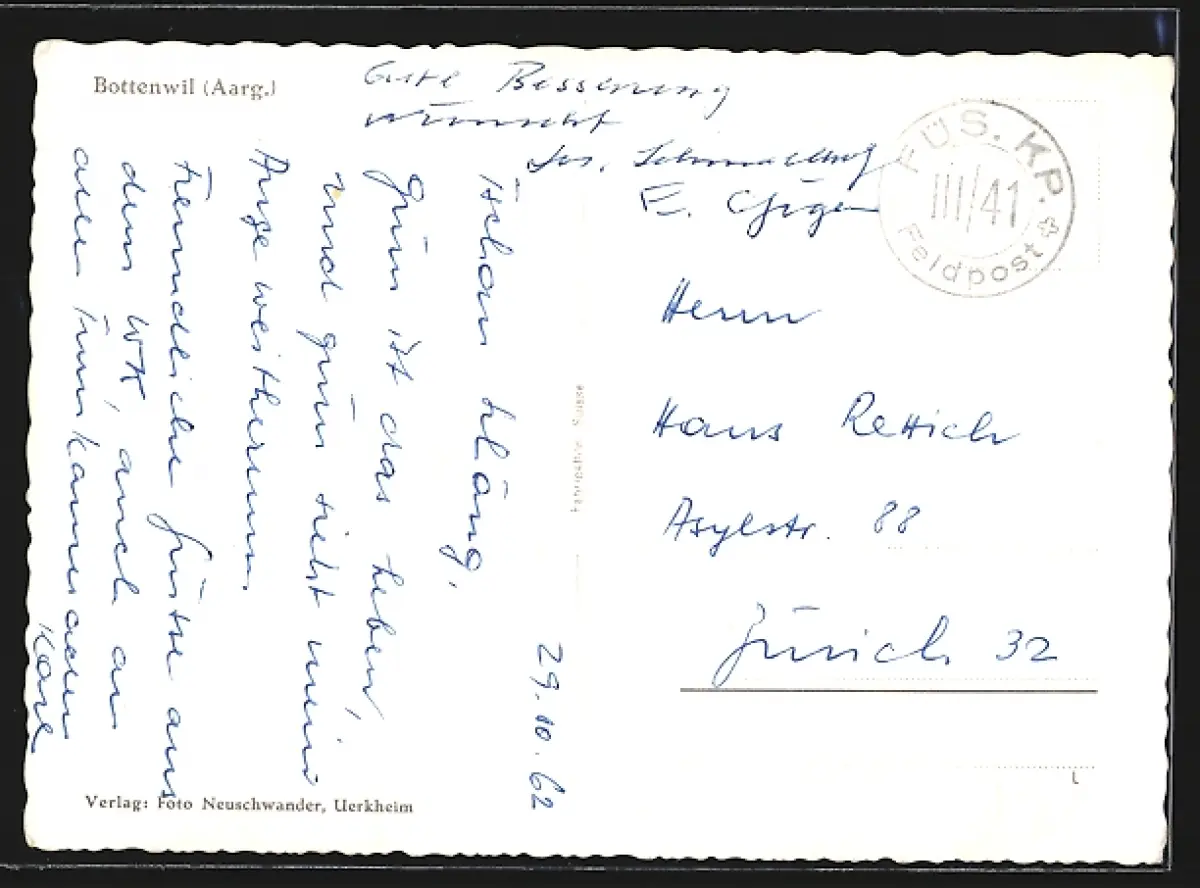 Bottenwil (Aarg.)
Gute Besserung
wünscht
E.
FÜS. KP.
III/41
Feldpost
29.10.62
Grün ist das Leben,
und grün sieht mein
Auge weitherum.
Freundliche Grüsse aus
dem WK, auch an
alle Turnkameraden
Karl
Herrn
Hans Rettich
Asylstr. 88
Zürich 32
Fabrication Suisse
Verlag: Foto Neuschwander, Uerkheim
L